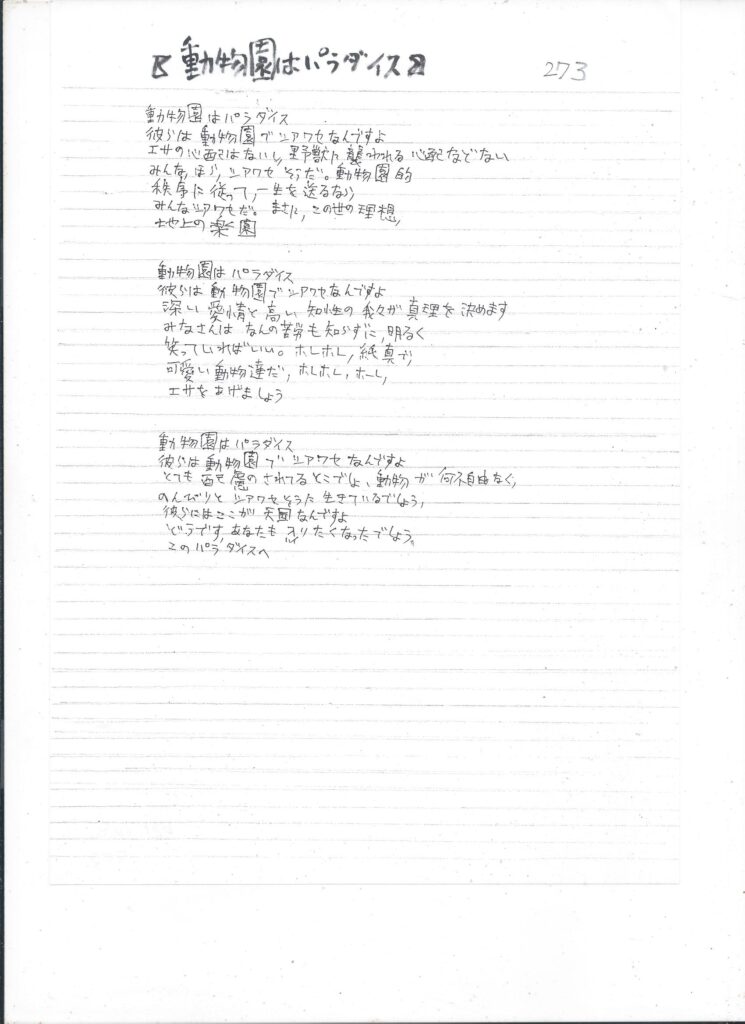 『動物園はパラダイス』
273
動物園はパラダイス
彼らは動物園でシアワセなんですよ
エサの心配はないし、野獣に襲われる心配などない
みんな、ほら、シアワセそうだ。動物園的
秩序に従って、一生を送るなら
みんなシアワセだ。まさに、この世の理想、
地上の楽園
動物園はパラダイス
彼らは動物園でシアワセなんですよ
深い愛情と高い知性の我々が真理を決めます
みなさんはなんの苦労も知らずに、明るく
笑っていればいい。ホレホレ、純真で、
可愛い動物達だ、ホレホレ、ホーレ、
エサをあげましょう
動物園はパラダイス
彼らは動物園でシアワセなんですよ
とても配慮のされてるとこでしょ、動物が何不自由なく、
のんびりとシアワセそうに生きているでしょう、
彼らにはここが天国なんですよ
どうです、あなたもりたくなったでしょう。
このパラダイスへ